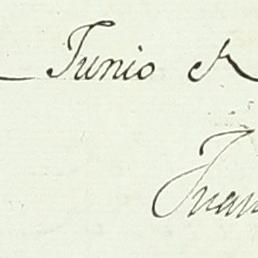 Junio
Juan